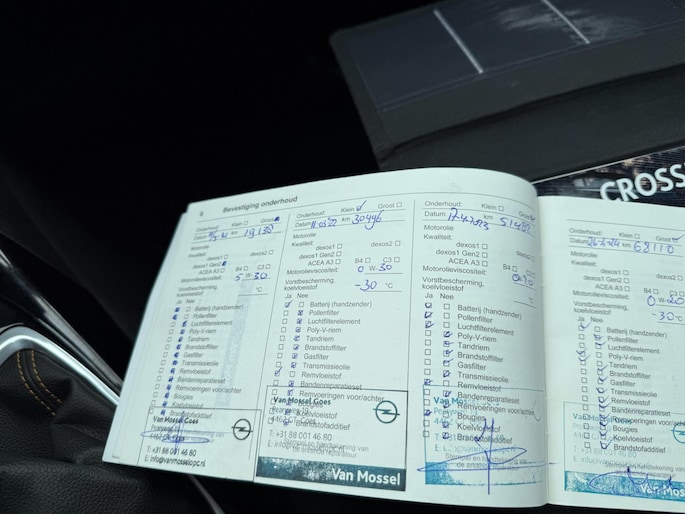 8 Bevestiging onderhoud
Onderhoud: Klein Groot
Datum km 19150
Motorolie
Kwaliteit:
dexos1 dexos2
dexos1 Gen2
ACEA A3 B4 C3
Motorolieviscositeit: 5 W-30
Vorstbescherming,
koelvloeistof °C
Ja Nee
Batterij (handzender)
Pollenfilter
Luchtfilterelement
Poly-V-riem
Tandriem
Brandstoffilter
Gasfilter
Transmissieolie
Remvloeistof
Bandenreparatieset
Remvoeringen voor/achter
Bougies
Koelvloeistof
Brandstofadditief
Van Mossel Goes
T: +31 88 001 46 80
E: info@vanmosselopc.nl
Onderhoud: Klein Groot
Datum 11-03-22 km 30496
Motorolie
Kwaliteit:
dexos1 dexos2
dexos1 Gen2
ACEA A3 B4 C3
Motorolieviscositeit: 0 W-30
Vorstbescherming,
koelvloeistof -30 °C
Ja Nee
Batterij (handzender)
Pollenfilter
Luchtfilterelement
Poly-V-riem
Tandriem
Brandstoffilter
Gasfilter
Transmissieolie
Remvloeistof
Bandenreparatieset
Remvoeringen voor/achter
Van Mossel Goes
T: +31 88 001 46 80
Van Mossel
Onderhoud: Klein Groot
Datum 17-4-2023 km
Motorolie
Kwaliteit:
dexos1 dexos2
dexos1 Gen2
ACEA A3 B4 C3
Motorolieviscositeit:
Vorstbescherming,
koelvloeistof
Ja Nee
Batterij (handzender)
Pollenfilter
Luchtfilterelement
Poly-V-riem
Tandriem
Brandstoffilter
Gasfilter
Transmissieolie
Remvloeistof
Bandenreparatieset
Remvoeringen voor/achter
Bougies
Koelvloeistof
Brandstofadditief
Onderhoud: Klein Groot
Datum 26-3-24 km 68110
Motorolie
Kwaliteit:
dexos1 dexos2
dexos1 Gen2
ACEA A3 B4 C3
Motorolieviscositeit: 0 W-20
Vorstbescherming,
koelvloeistof -30 °C
Ja Nee
Batterij (handzender)
Pollenfilter
Luchtfilterelement
Poly-V-riem
Tandriem
Brandstoffilter
Gasfilter
Transmissieolie
Remvloeistof
Bandenreparatieset
Remvoeringen voor/achter
Bougies
Koelvloeistof
Brandstofadditief
CROSS